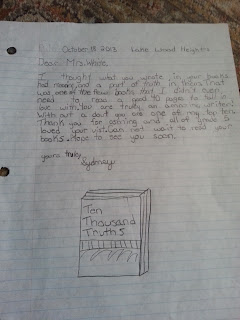 October 18 2013 Lake Wood Heights
Dear Mrs. White
I thought what you wrote in your books
had meaning and a part of truth in yours that
was one of the few books that I didn't even
need to read a good 40 pages to fall in
love with. You are truly an amazing writer!
With out a dout you are one of my top ten.
Thank you for coming and all of grade 5
loved your vist. I can't wait to read your
books. Hope to see you soon.
yours truley,
Sydney
Ten
Thousand
Truths